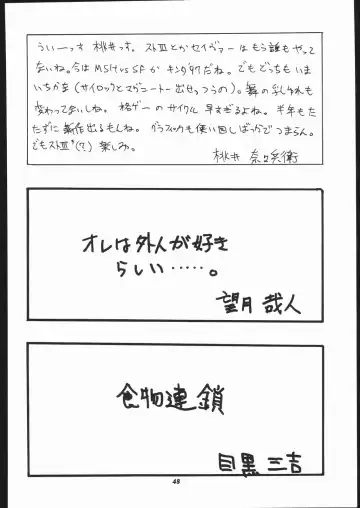 うぃーっす 桃井っす。ストⅢとかセイヴァーはもう誰もやって
ないね。今はMSH vs SFかキング97だね。でもどっちもいま
いちかな(サイロックとマグニートー出せっつうの)。舞の乳ゆれも
変わってないしね。格ゲーのサイクル早すぎるよね。半年もた
たずに新作出るもんね。グラフィックも使い回しばっかでつまらん。
でもストⅢ'(?)楽しみ。
桃井 奈々兵衛
オレは外人が好き
らしい……。
望月 哉人
食物連鎖
目黒 三吉
48